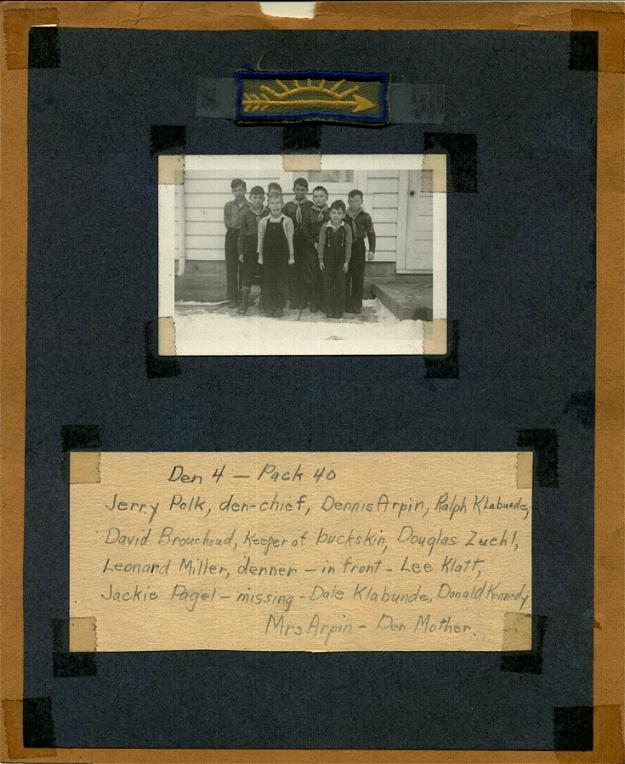 Den 4 — Pack 40
Jerry Polk, den-chief, Dennis Arpin, Ralph Klabunde,
David Brouchoud, Keeper of buckskin, Douglas Zuehl,
Leonard Miller, denner — in front - Lee Klatt,
Jackie Pagel - missing - Dale Klabunde, Donald Kennedy
Mrs Arpin - Den Mother.